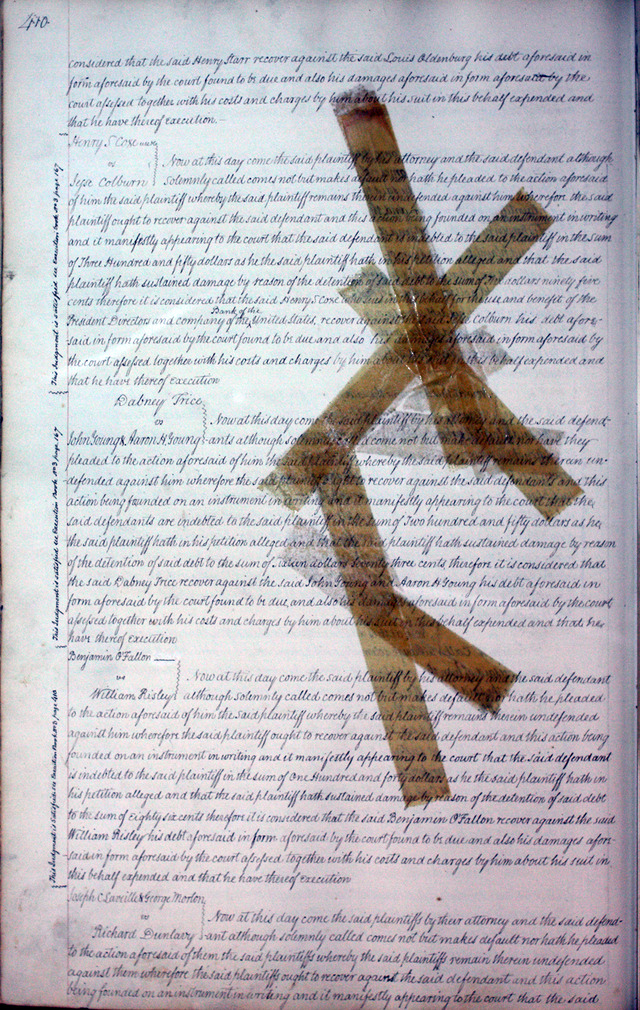 410
considered that the said Henry Starr recover against the said Louis Oldenburg his debt aforesaid in
form aforesaid by the court found to be due and also his damages aforesaid in form aforesaid by the
court assessed together with his costs and charges by him about his suit in this behalf expended and
that he have thereof execution.
Henry S Coxe
vs
Now at this day come the said plaintiff by his attorney and the said defendant although
Jesse Colburn
solemnly called comes not but makes default nor hath he pleaded to the action aforesaid
of him the said plaintiff whereby the said plaintiff remains therein undefended against him wherefore the said
plaintiff ought to recover against the said defendant and this action being founded on an instrument in writing
and it manifestly appearing to the court that the said defendant is indebted to the said plaintiff in the sum
of Three Hundred and fifty dollars as he the said plaintiff hath in his petition alleged and that the said
plaintiff hath sustained damage by reason of the detention of said debt to the sum of dollars ninety five
cents therefore it is considered that the said Henry S Coxe who sues in this behalf for the use and benefit of the
Bank of the
President Directors and company of the United States, recover against the said Colburn his debt afore-
said in form aforesaid by the court found to be due and also his damages aforesaid in form aforesaid by
the court assessed together with his costs and charges by him about his suit in this behalf expended and
that he have thereof execution
Dabney Trice
vs
Now at this day come the said plaintiff by his attorney and the said defend-
John Young & Aaron H Young
-ants although solemnly called come not but make default nor have they
pleaded to the action aforesaid of him the said plaintiff whereby the said plaintiff remains therein un-
defended against him wherefore the said plaintiff ought to recover against the said defendants and this
action being founded on an instrument in writing and it manifestly appearing to the court that the
said defendants are indebted to the said plaintiff in the sum of Two hundred and fifty dollars as he
the said plaintiff hath in his petition alleged and that the said plaintiff hath sustained damage by reason
of the detention of said debt to the sum of dollars Seventy three cents therefore it is considered that
the said Dabney Trice recover against the said John Young and Aaron H Young his debt aforesaid in
form aforesaid by the court found to be due, and also his damages aforesaid in form aforesaid by the court
assessed together with his costs and charges by him about his suit in this behalf expended and that he
have thereof execution
Benjamin O'Fallon
vs
Now at this day come the said plaintiff by his attorney and the said defendant
William Risley
although solemnly called comes not but makes default nor hath he pleaded
to the action aforesaid of him the said plaintiff whereby the said plaintiff remains therein undefended
against him wherefore the said plaintiff ought to recover against the said defendant and this action being
founded on an instrument in writing and it manifestly appearing to the court that the said defendant
is indebted to the said plaintiff in the sum of One Hundred and forty dollars as he the said plaintiff hath in
his petition alleged and that the said plaintiff hath sustained damage by reason of the detention of said debt
to the sum of eighty six cents therefore it is considered that the said Benjamin O'Fallon recover against the said
William Risley his debt aforesaid in form aforesaid by the court found to be due and also his damages afore-
said in form aforesaid by the court assessed together with his costs and charges by him about his suit in
this behalf expended and that he have thereof execution
Joseph C Laveille & George Morton
vs
Now at this day come the said plaintiffs by their attorney and the said defend-
Richard Dunlavy
-ant although solemnly called comes not but makes default nor hath he pleaded
to the action aforesaid of them the said plaintiffs whereby the said plaintiffs remain therein undefended
against them wherefore the said plaintiffs ought to recover against the said defendant and this action
being founded on an instrument in writing and it manifestly appearing to the court that the said
This judgment is satisfied see Execution Book No 3 page 167
This judgment is satisfied see Execution Book No 3 page 167
This judgment is satisfied see Execution Book No 3 page